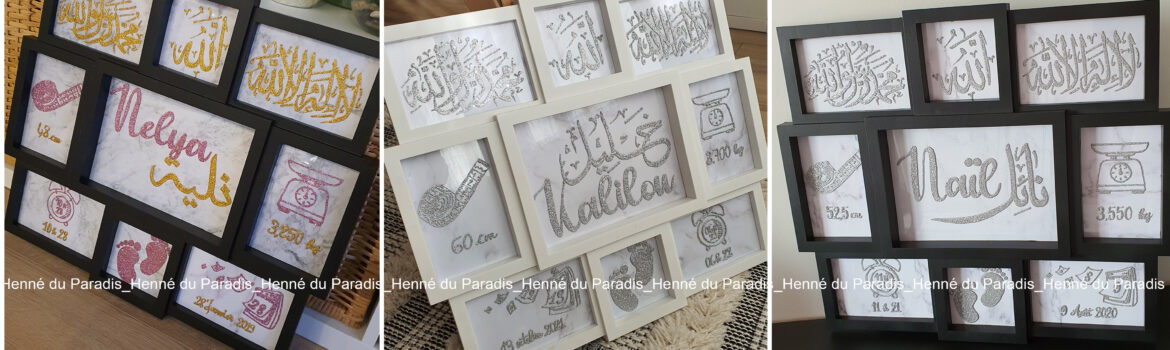 محمد رسول الله
الله
لا إله إلا الله
48 cm
Nelya
نلية
3,250 kg
10 h 28
28 Janvier 2019
محمد رسول الله
الله
لا إله إلا الله
60 cm
Kalilou
محمد رسول الله
الله
لا إله إلا الله
52,5 cm
Naïl
نائل
3,550 kg
11 h 21
9 Août 2020
Henné du Paradis_Henné du Paradis_Henné du Paradis_Henné du Paradis_Henné du Paradis_Henné du Paradis_Henné du Paradis_Henné du Paradis_Henné du Paradis